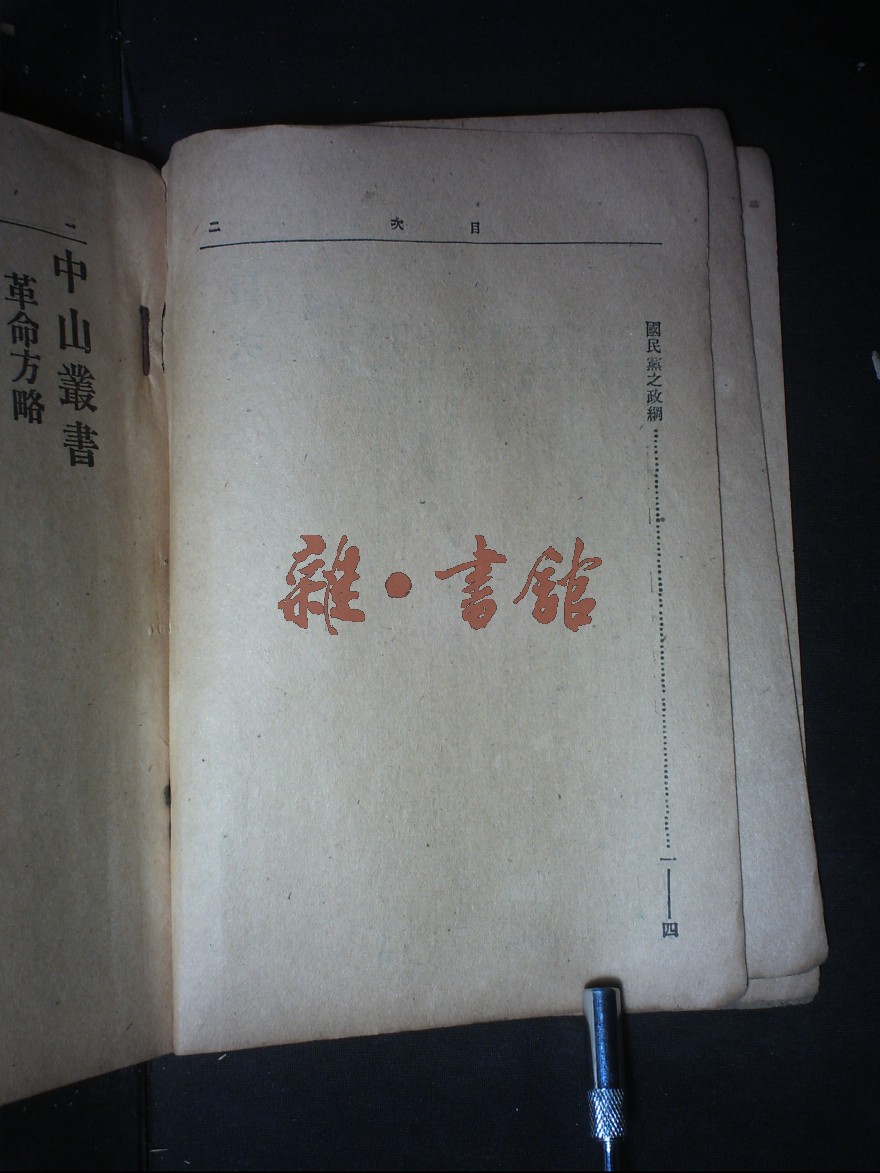 目次 二
國民黨之政綱……一——四
雜·書館
一
中山叢書
革命方略